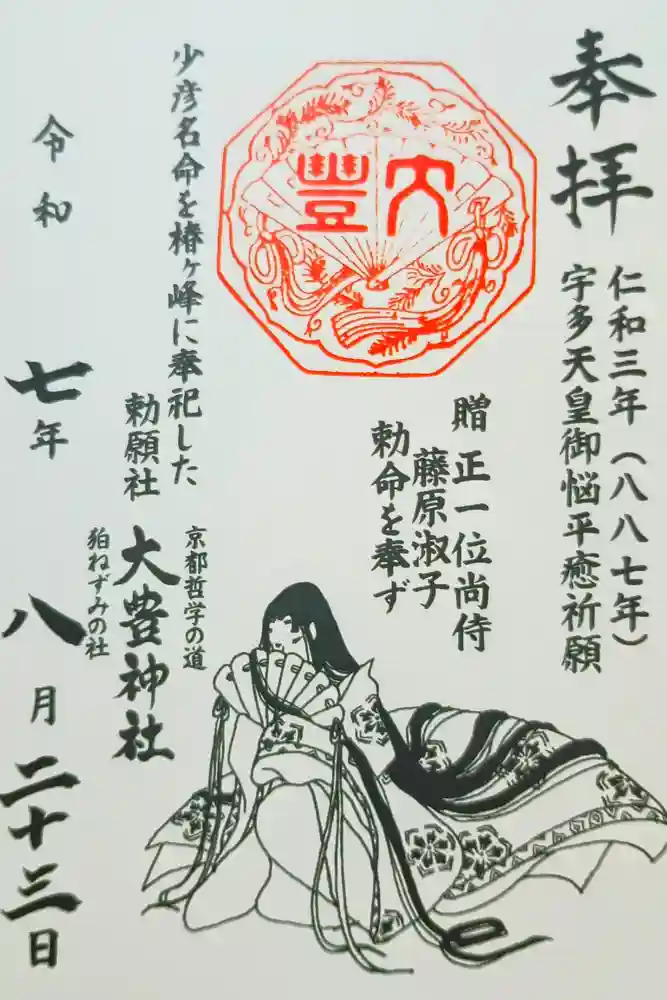 奉拝
仁和三年(八八七年)
宇多天皇御悩平癒祈願
大豐
贈 正一位尚侍
藤原淑子
勅命を奉ず
少彦名命を椿ヶ峰に奉祀した
勅願社
京都哲学の道
大豊神社
狛ねずみの社
令和 七年 八月二十三日